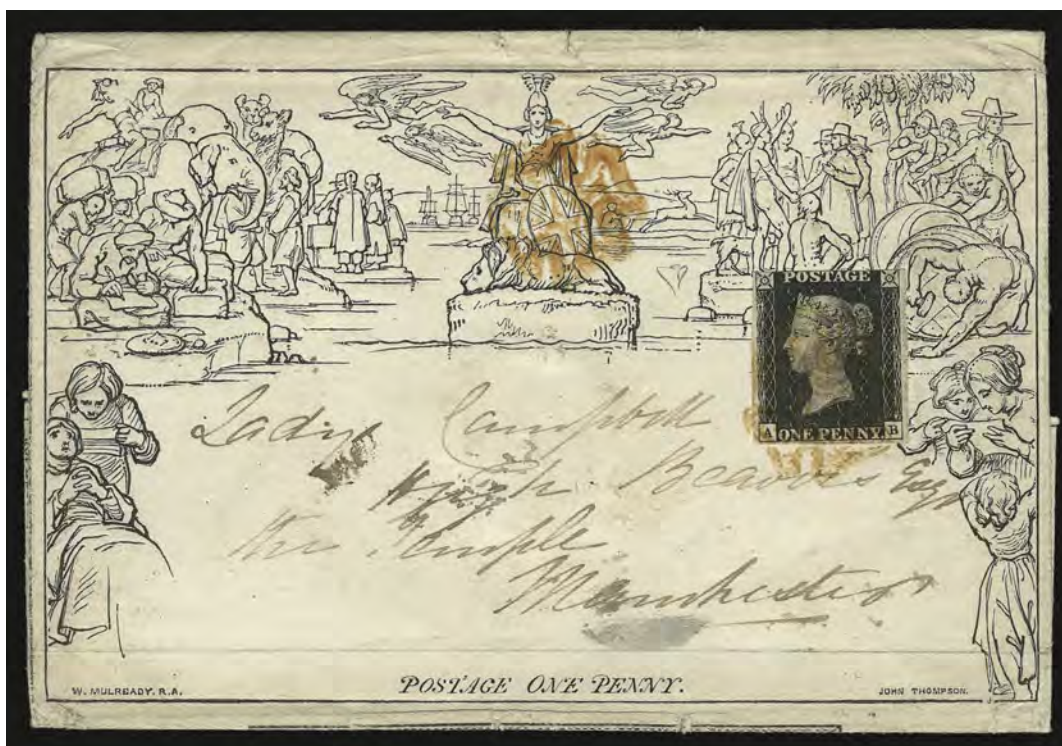 POSTAGE
A ONE PENNY B
Lady Campbell
Hugh Beavors Esqr
the Temple
Manchester
W. MULREADY. R.A.
POSTAGE ONE PENNY.
JOHN THOMPSON.